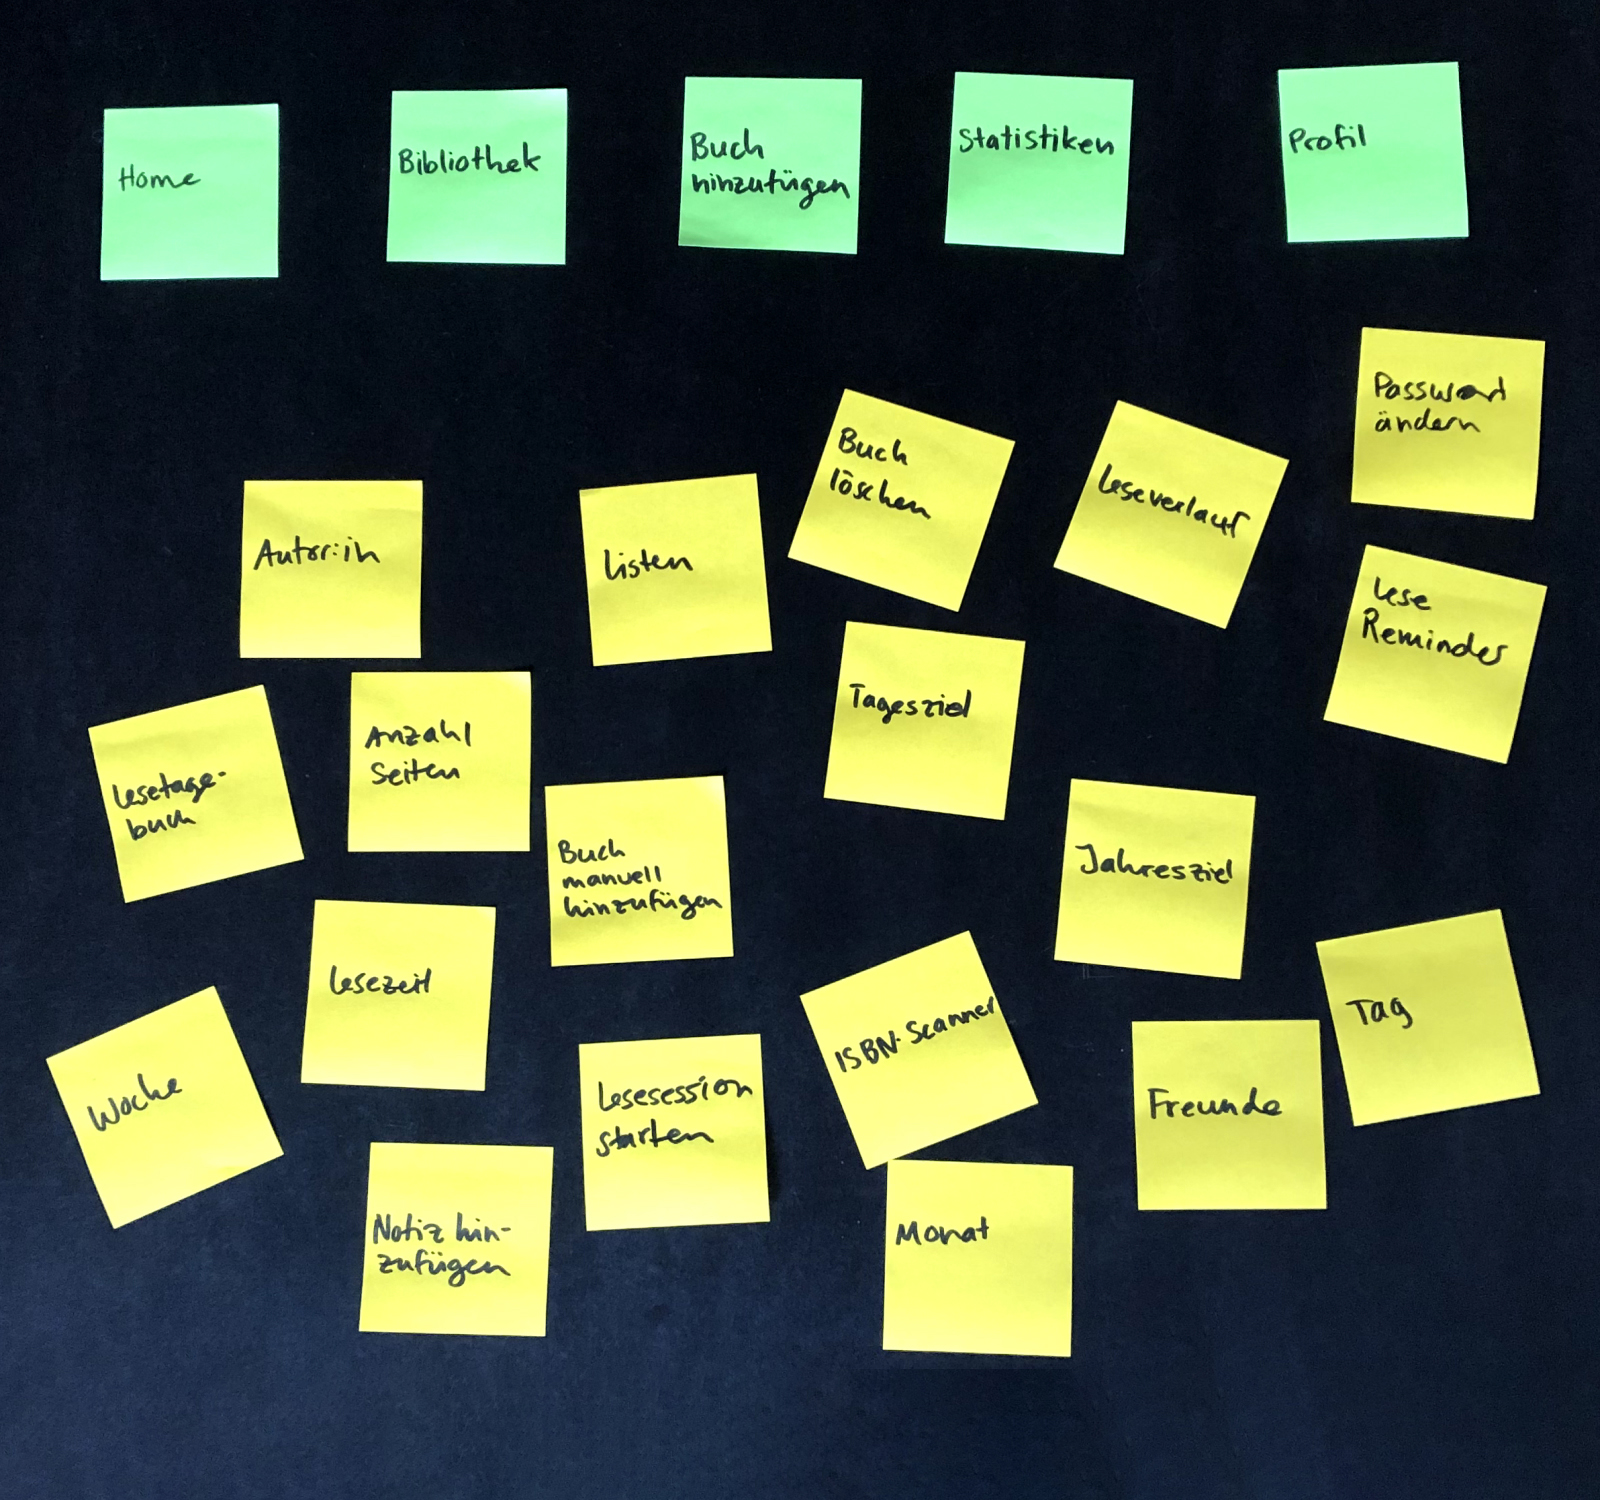 Home
Bibliothek
Buch
hinzufügen
Statistiken
Profil
Passwort
ändern
Buch
löschen
Leseverlauf
Autor:in
Listen
Lese
Reminder
Tagesziel
Lesetage-
buch
Anzahl
Seiten
Buch
manuell
hinzufügen
Jahresziel
Lesezeit
ISBN-Scanner
Tag
Woche
Lesesession
starten
Freunde
Notiz hin-
zufügen
Monat